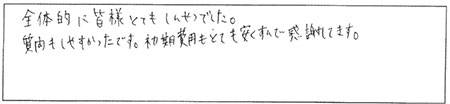 全体的に皆様とてもしんせつでした。
質問もしやすかったです。初期費用もとても安くすんで感謝してます。